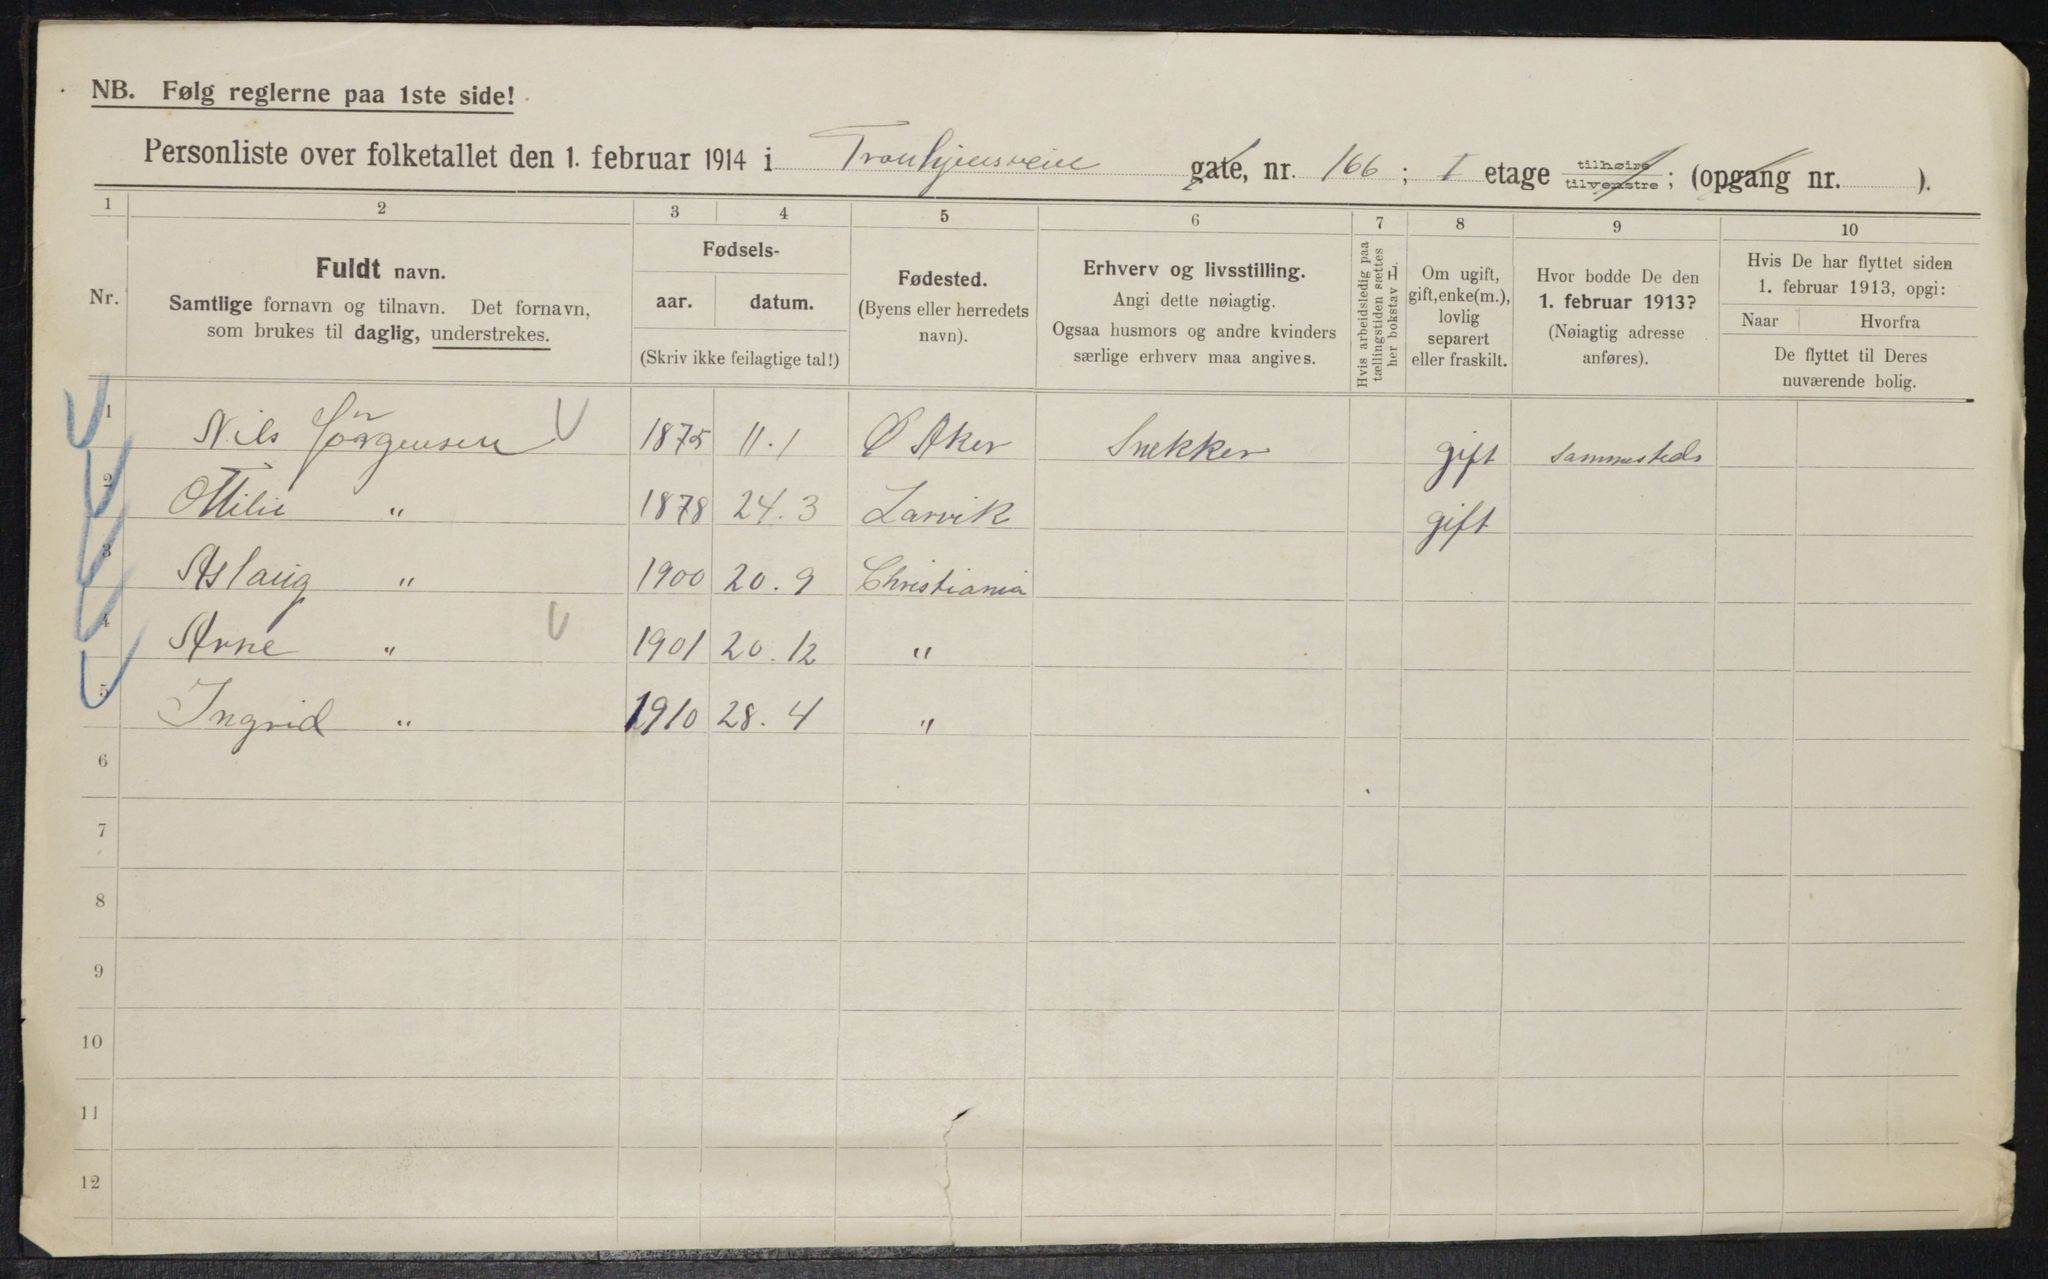 NB. Følg reglerne paa 1ste side!
Personliste over folketallet den 1. februar 1914 i Tronhjemsveien gate, nr. 166 ; I etage tilhøire tilvenstre ; (opgang nr. ).
1 2 3 4 5 6 7 8 9 10
Nr.
Fuldt navn.
Samtlige fornavn og tilnavn. Det fornavn,
som brukes til daglig, understrekes.
Fødsels-
aar. datum.
(Skriv ikke feilagtige tal!)
Fødested.
(Byens eller herredets
navn).
Erhverv og livsstilling.
Angi dette nøiagtig.
Ogsaa husmors og andre kvinders
særlige erhverv maa angives.
Hvis arbeidsledig paa
tællingstiden sættes
her bokstav L.
Om ugift,
gift, enke(m.),
lovlig
separert
eller fraskilt.
Hvor bodde De den
1. februar 1913?
(Nøiagtig adresse
anføres).
Hvis De har flyttet siden
1. februar 1913, opgi:
Naar Hvorfra
De flyttet til Deres
nuværende bolig.
1 Nils Jörgensen 1875 11.1 Ø Aker Snekker gift sammesteds
2 Ottilie " 1878 24.3 Larvik gift
3 Aslaug " 1900 20.9 Christiania
4 Arne " 1901 20.12 "
5 Ingrid " 1910 28.4 "
6
7
8
9
10
11
12